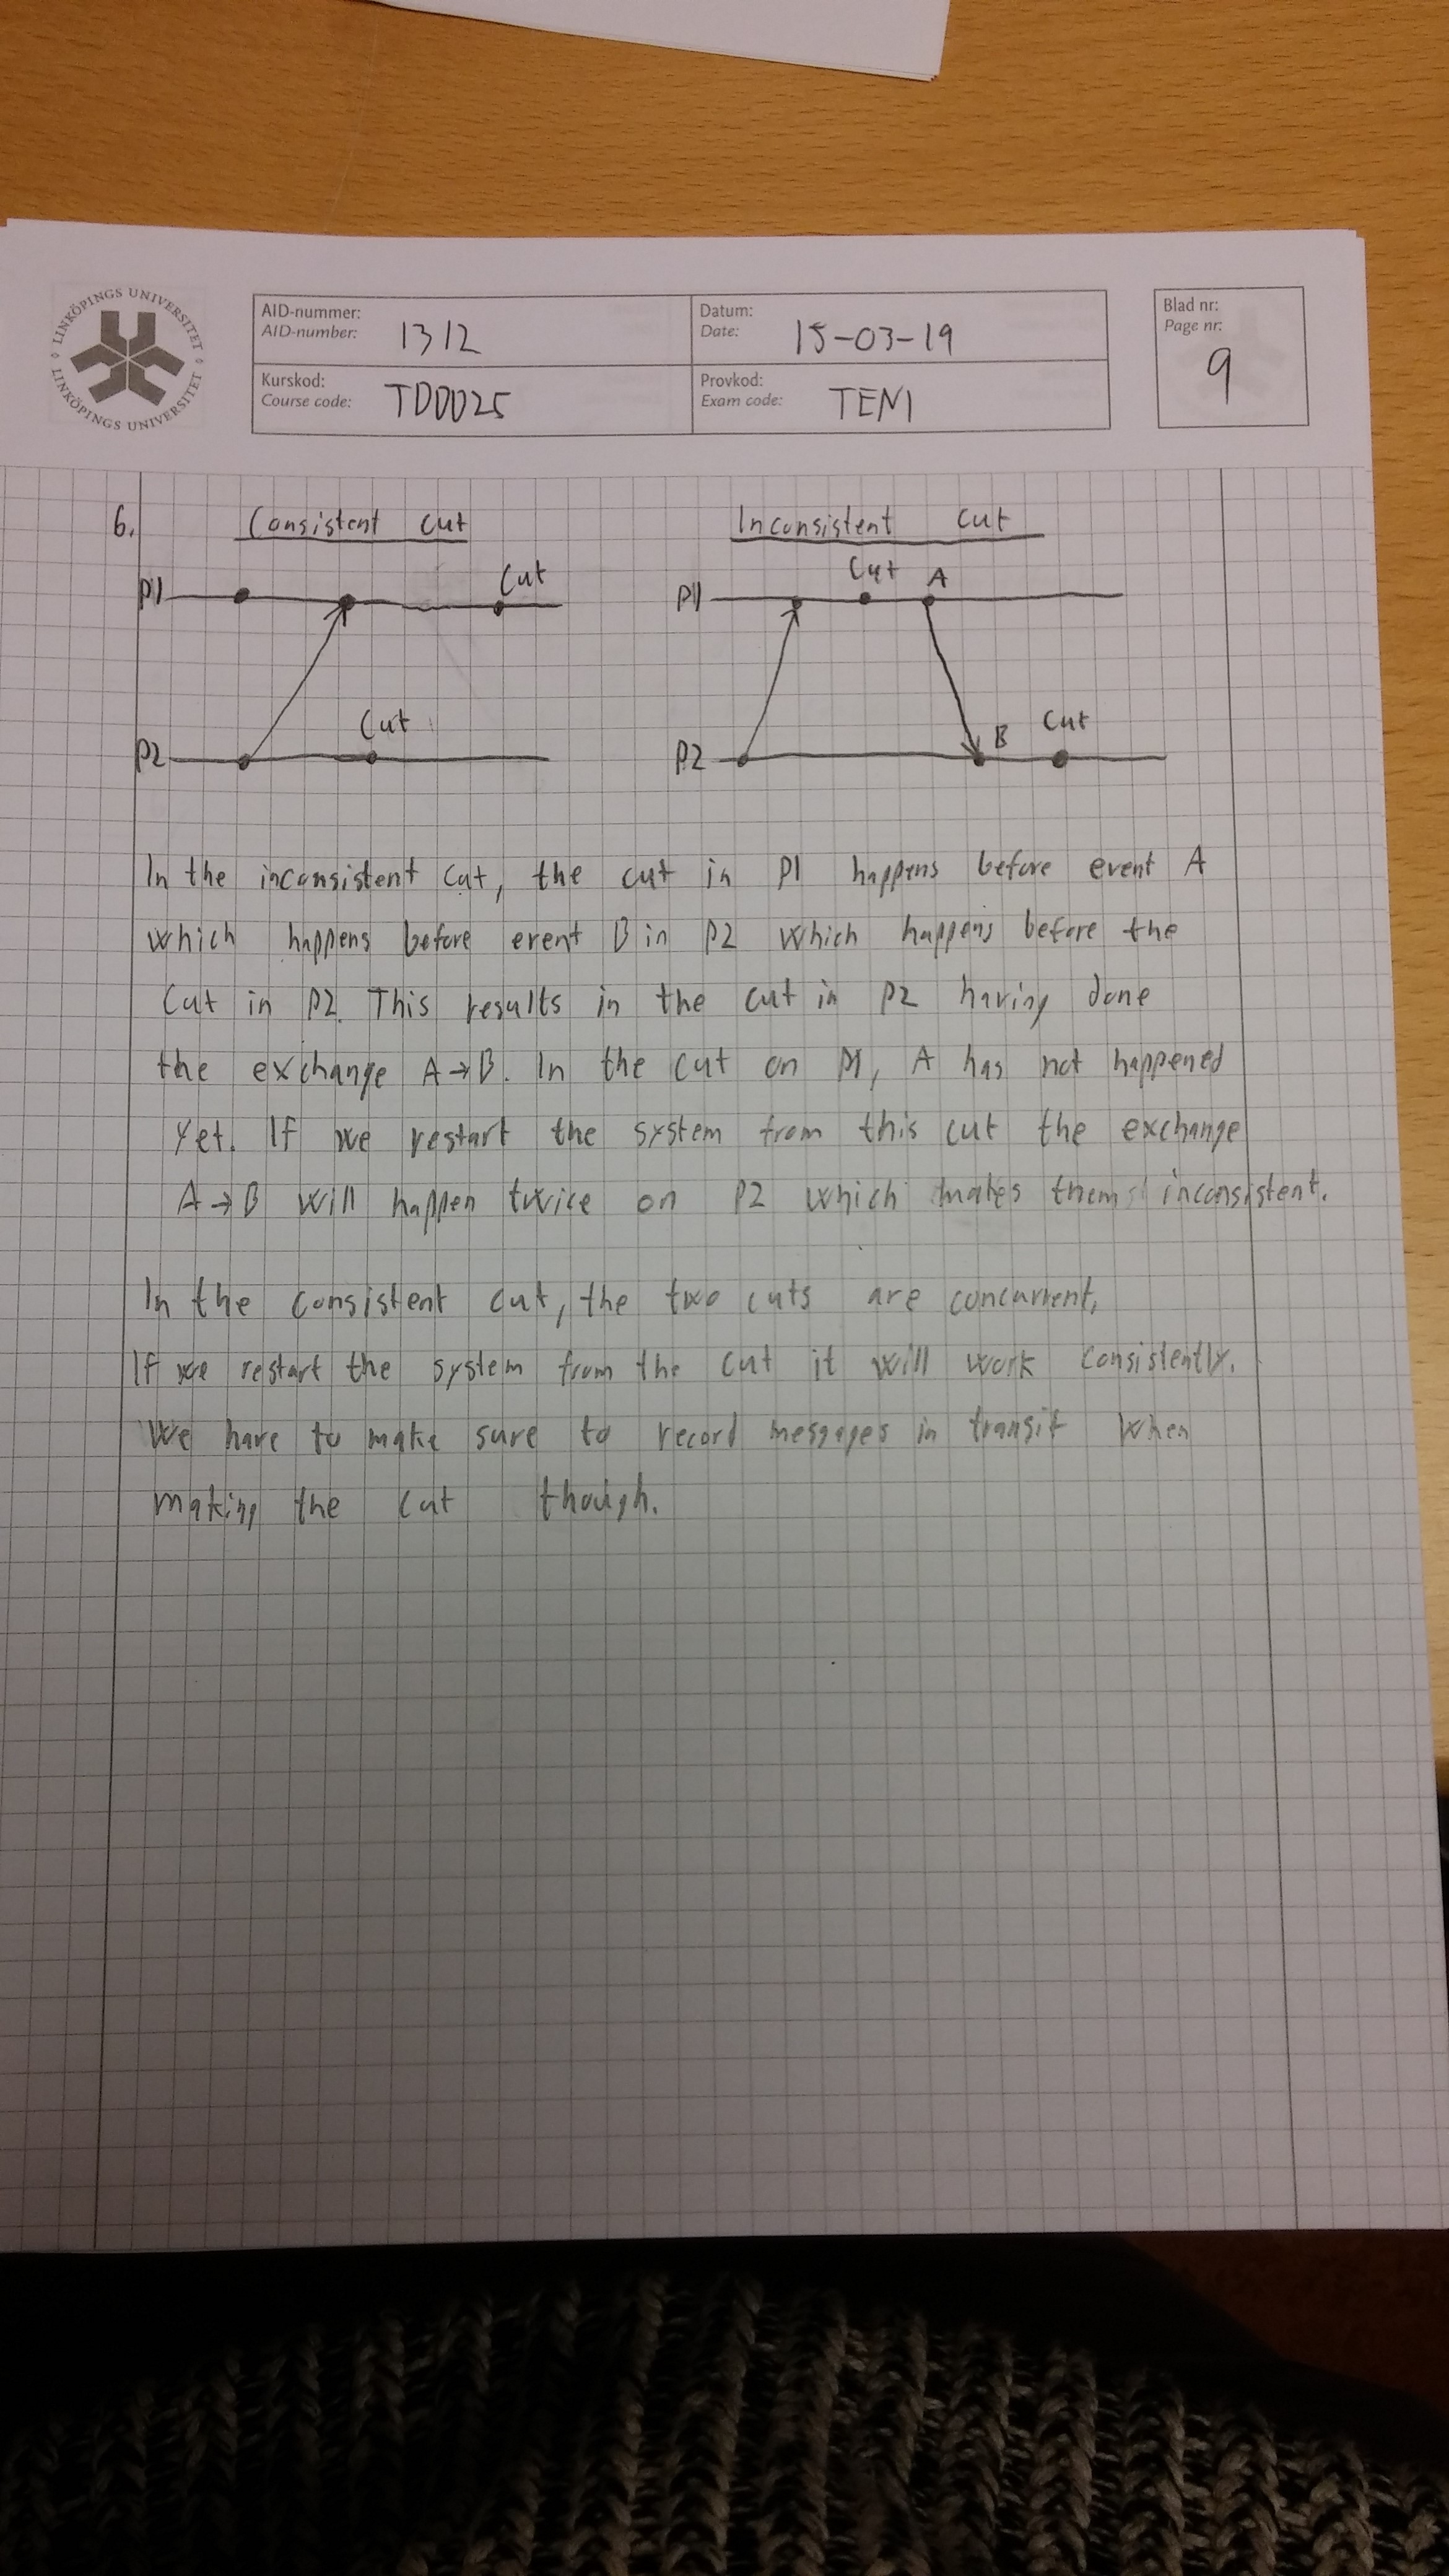 LINKÖPINGS UNIVERSITET
LINKÖPINGS UNIVERSITET
AID-nummer:
AID-number: 1312
Datum:
Date: 15-03-19
Blad nr:
Page nr:
9
Kurskod:
Course code: TDDD25
Provkod:
Exam code: TEN1
6. Consistent cut
Inconsistent cut
P1 Cut
P1 Cut A
P2 Cut
P2 B Cut
In the inconsistent cut, the cut in P1 happens before event A
which happens before event B in P2 which happens before the
cut in P2. This results in the cut in P2 having done
the exchange A→B. In the cut on P1, A has not happened
yet. If we restart the system from this cut the exchange
A→B will happen twice on P2 which makes them inconsistent.
In the consistent cut, the two cuts are concurrent.
If we restart the system from the cut it will work consistently.
We have to make sure to record messages in transit when
making the cut though.